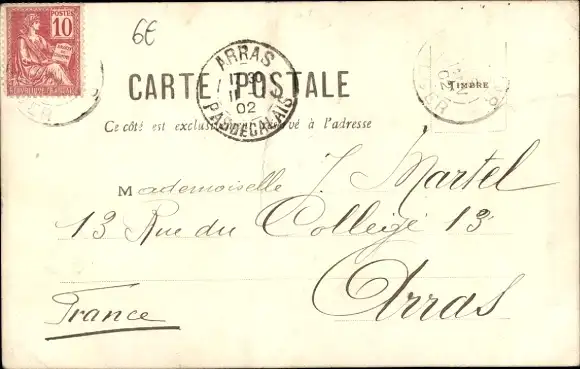 6€
POSTES
10
RÉPUBLIQUE FRANÇAISE
ARRAS
02
PAS DE CALAIS
CARTE POSTALE
TIMBRE
Ce côté est exclusivement réservé à l'adresse
Mademoiselle J. Martel
13 Rue du College 13
Arras
France